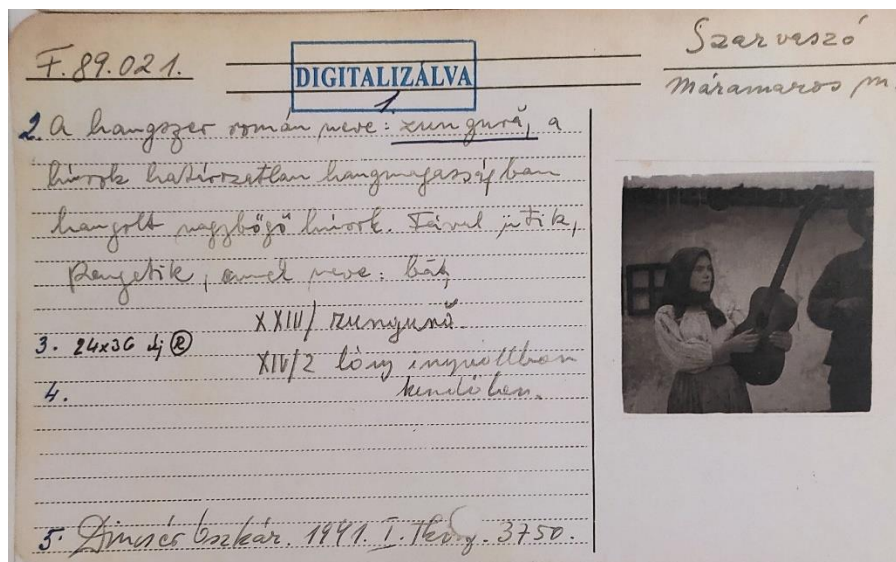 F.89.021.
DIGITALIZÁLVA
Szarvaszó
Máramaros m.
1.
2. A hangszer román neve: zungură, a
húrok határozatlan hangmagasságban
hangolt nagybőgő húrok. Fával ütik,
Pengetik, neve: băț
XXIII/ zungură.
3. 24x36 új
XIV/2 lány ingvállban
4. kendőben.
5. Dincsér Oszkár. 1941. I. 3750.